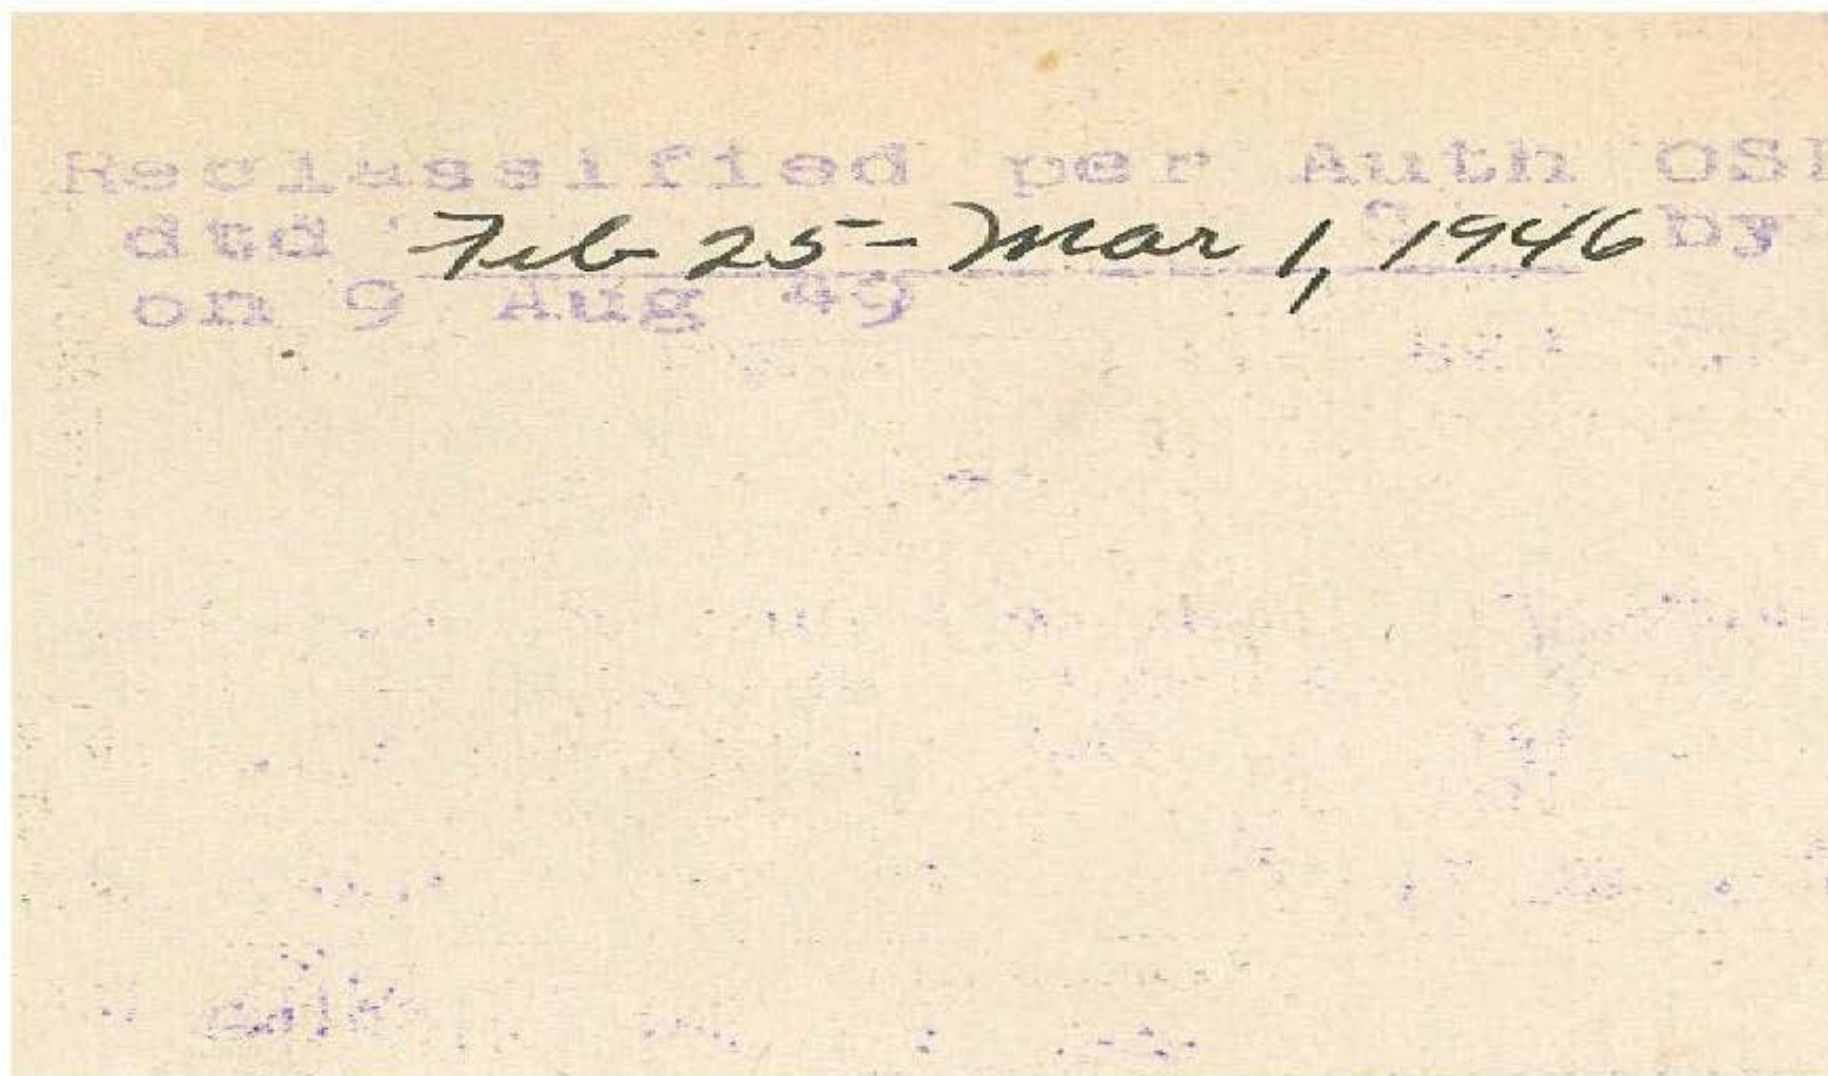 Reclassified per Auth
dtd Feb 25 - Mar 1, 1946 by
on 9 Aug 49